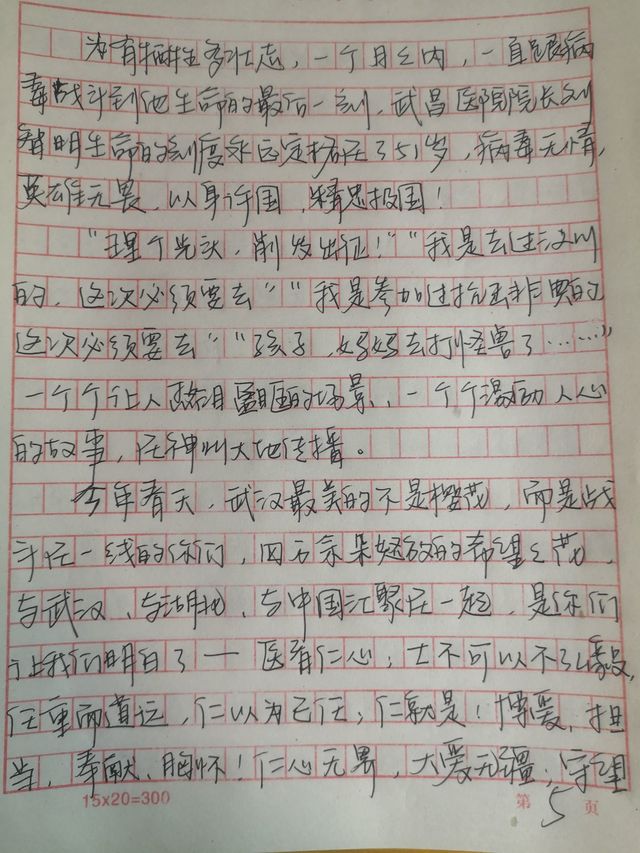 为有牺牲多壮志，一个月之内，一直跟病
毒战斗到他生命的最后一刻，武昌医院院长刘
智明生命的刻度永远定格在了51岁，病毒无情，
英雄无畏，以身许国，精忠报国！
“理个光头，削发出征！”“我是去过汶川
的，这次必须要去”“我是参加过抗击非典的
这次必须要去”“孩子，妈妈去打怪兽了……”
一个个让人热泪盈眶的场景，一个个激动人心
的故事，在神州大地传播。
今年春天，武汉最美的不是樱花，而是战
斗在一线的你们，四万余朵怒放的希望之花，
与武汉、与湖北、与中国汇聚在一起，是你们
让我们明白了——医者仁心；士不可以不弘毅，
任重而道远，仁以为己任；仁就是！博爱、担
当、奉献、胸怀！仁心无界，大爱无疆；守望
15×20=300
第5页